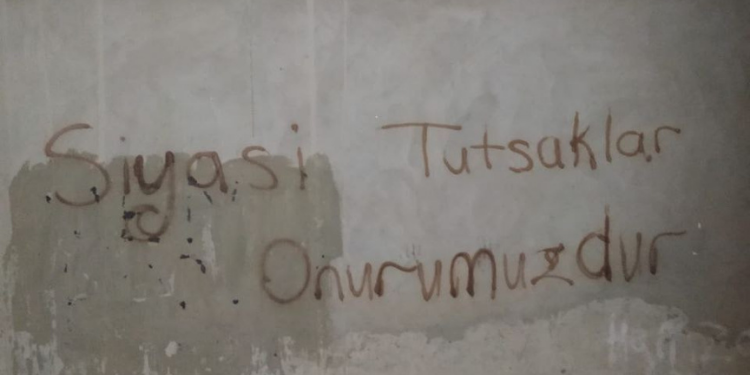 Siyasi Tutsaklar
Onurumuzdur